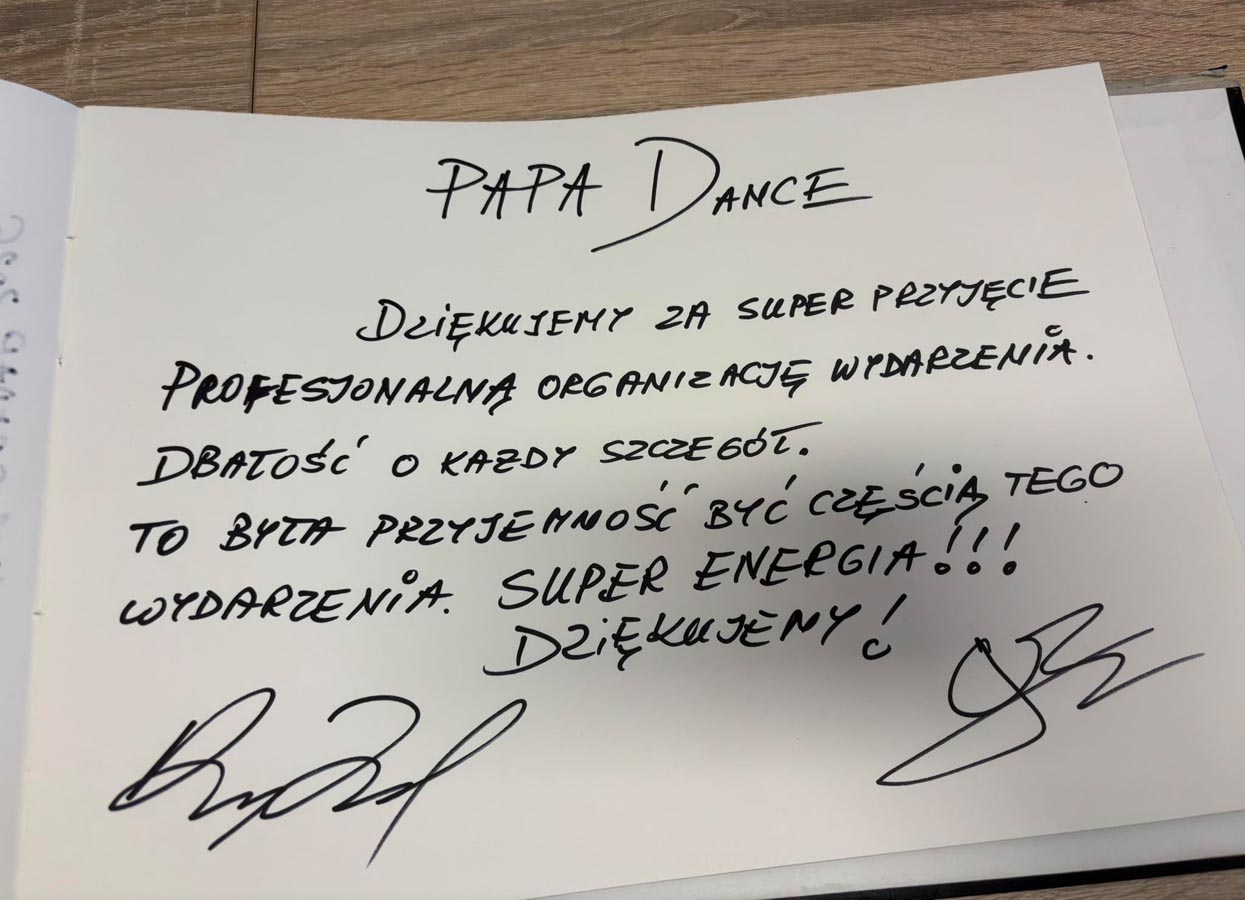 PAPA DANCE
DZIĘKUJEMY ZA SUPER PRZYJĘCIE
PROFESJONALNĄ ORGANIZACJĘ WYDARZENIA.
DBAŁOŚĆ O KAŻDY SZCZEGÓŁ.
TO BYŁA PRZYJEMNOŚĆ BYĆ CZĘŚCIĄ TEGO
WYDARZENIA. SUPER ENERGIA!!!
DZIĘKUJEMY!